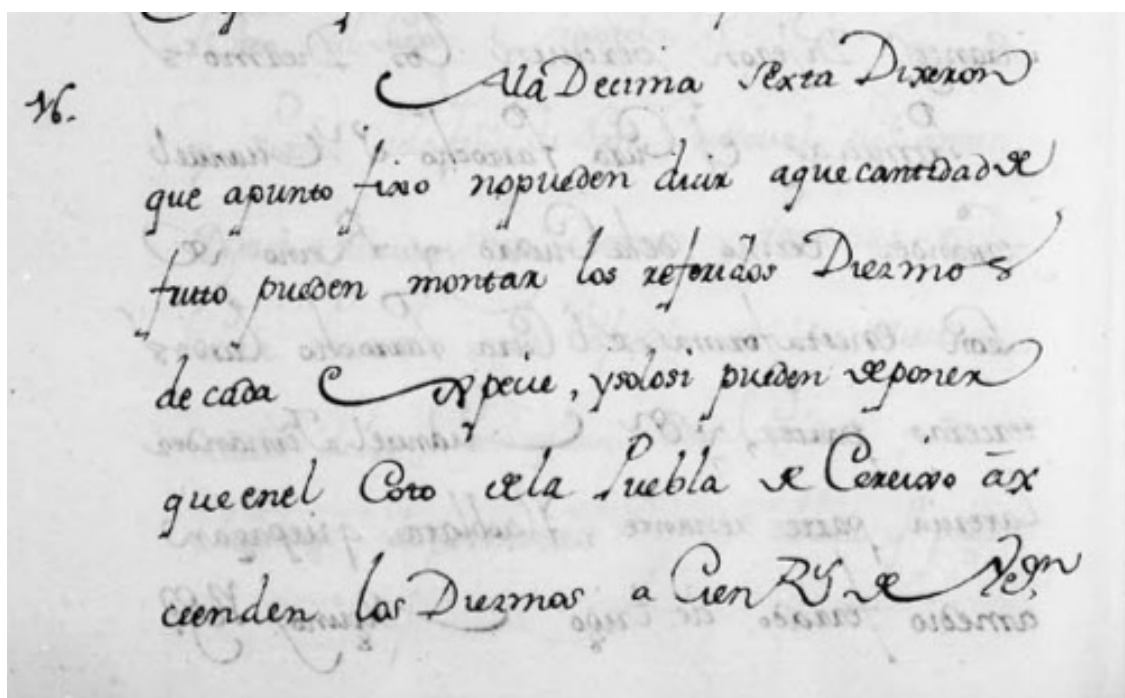 16.
Ala Decima Sexta Dixeron
que apunto fixo nopueden decir aque cantidad de
fruto pueden montar los referidos Diezmos
de cada Especie, ysolosi pueden deponer
que enel Coto dela Puebla de
cienden los Diezmos a Cien R.s de Vellon